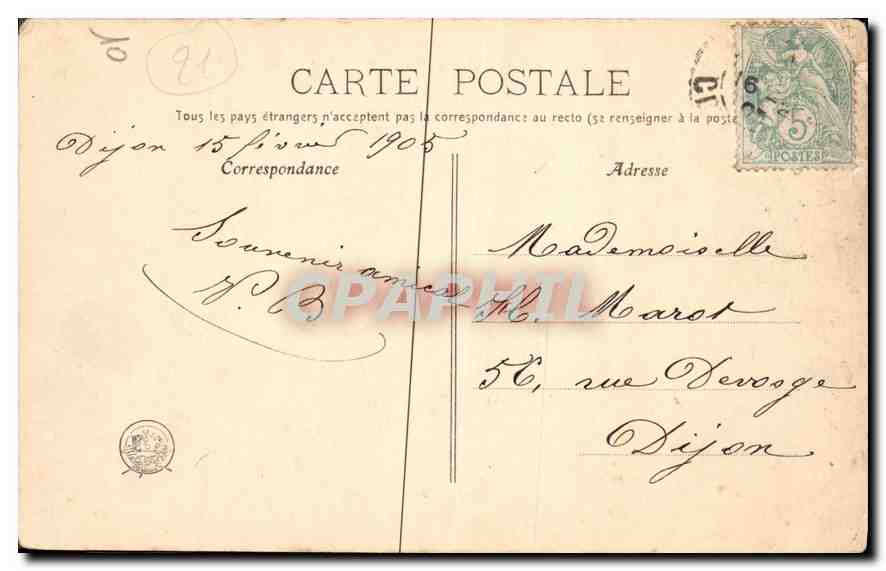 01
21
CARTE POSTALE
Tous les pays étrangers n'acceptent pas la correspondance au recto (se renseigner à la poste
Dijon 15 février 1905
Correspondance
Souvenir amical
V. B
Adresse
Mademoiselle
H. Marot
56, rue Devosge
Dijon
5c
POSTES
CPAPHIL